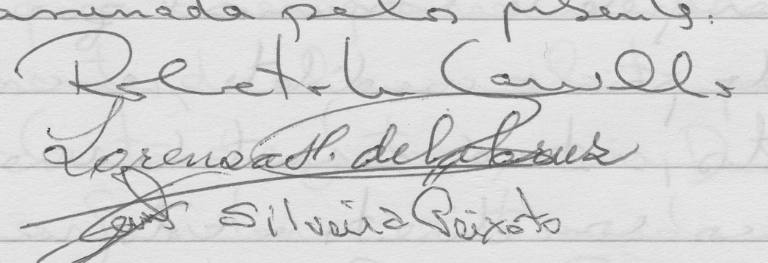 assinada pelos presentes.
Roberto Carvalho
Lorenza H. de la Cruz
Silveira Peixoto